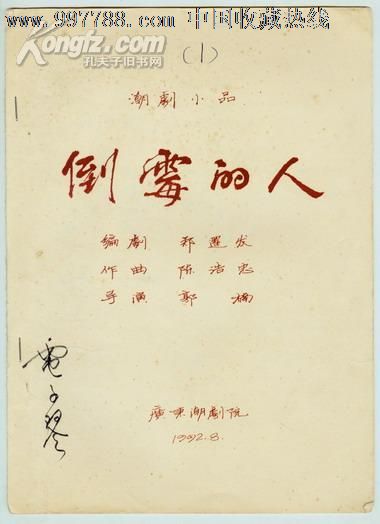 www.997788.com 中国收藏热线
Kongfz.com
孔夫子旧书网
(1)
潮劇小品
倒霉的人
编劇 郑選发
作曲 陈浩忠
导演 郭楠
電子琴
廣東潮劇院
1992.8.